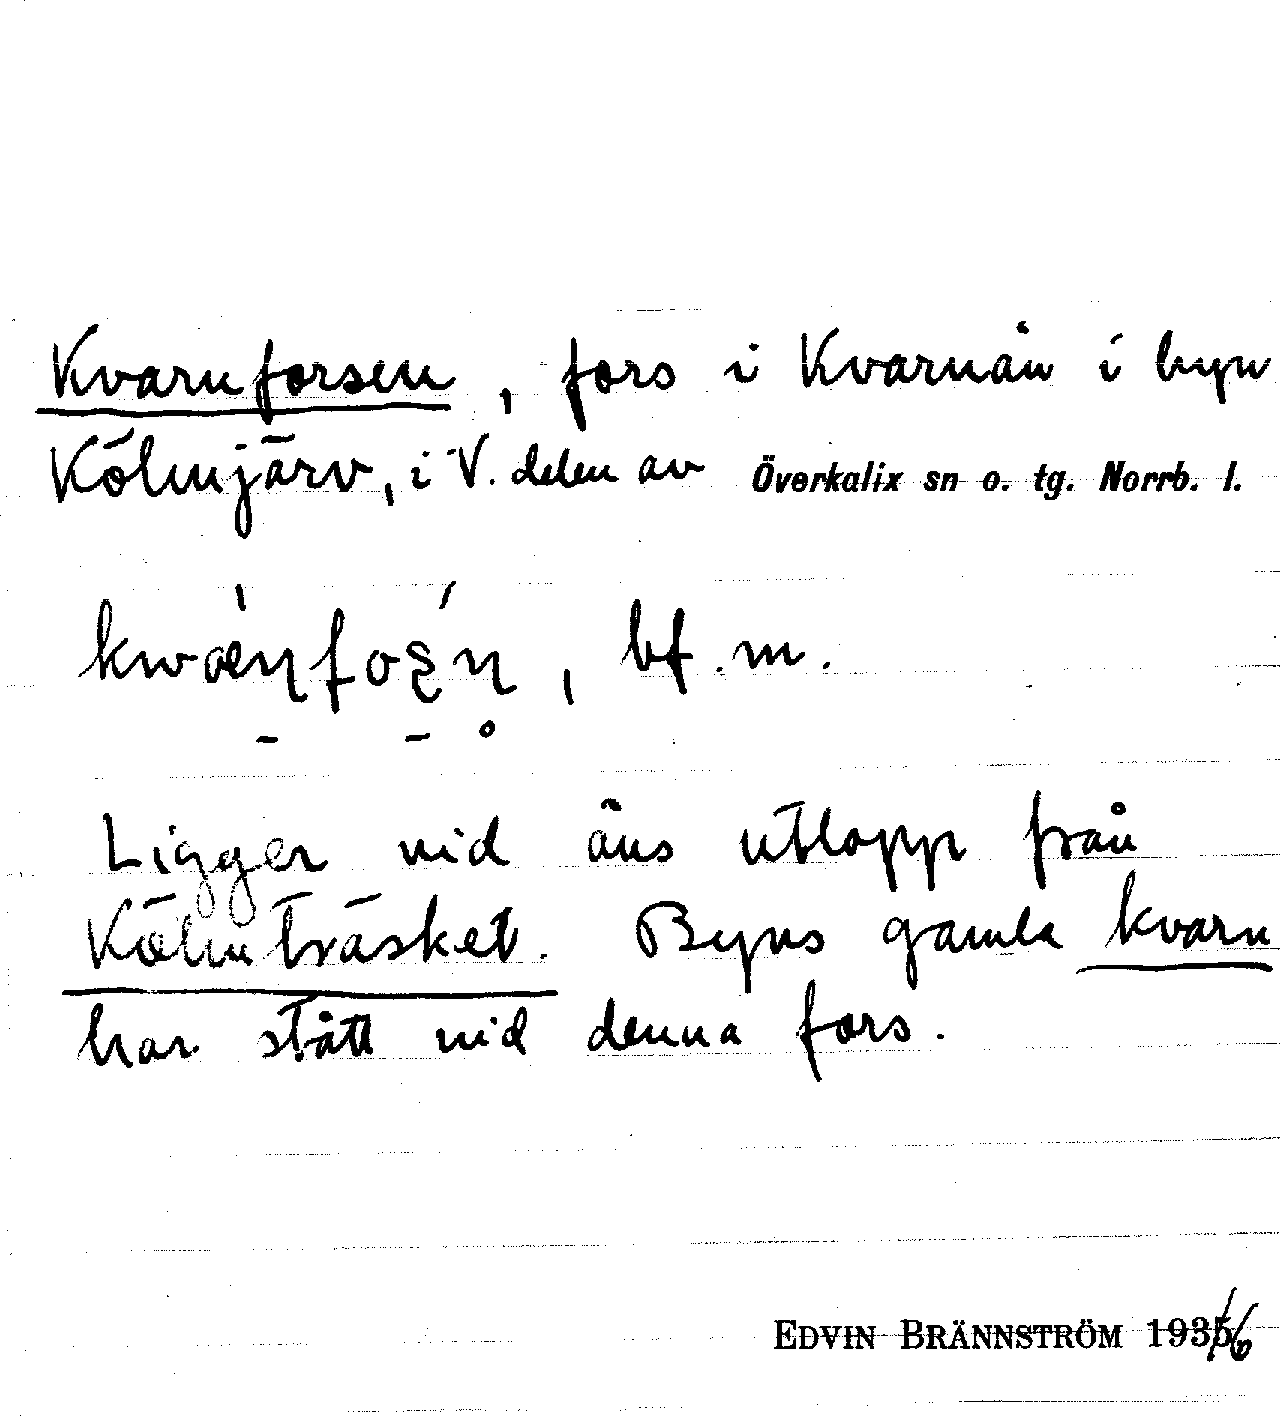 Kvarnforsen, fors i Kvarnån i byn
Kölmjärv, i V. delen av Överkalix sn o. tg. Norrb. l.
bf. m.
Ligger vid åns utlopp från
Kölmträsket. Byns gamla kvarn
har stått vid denna fors.
EDVIN BRÄNNSTRÖM 1936